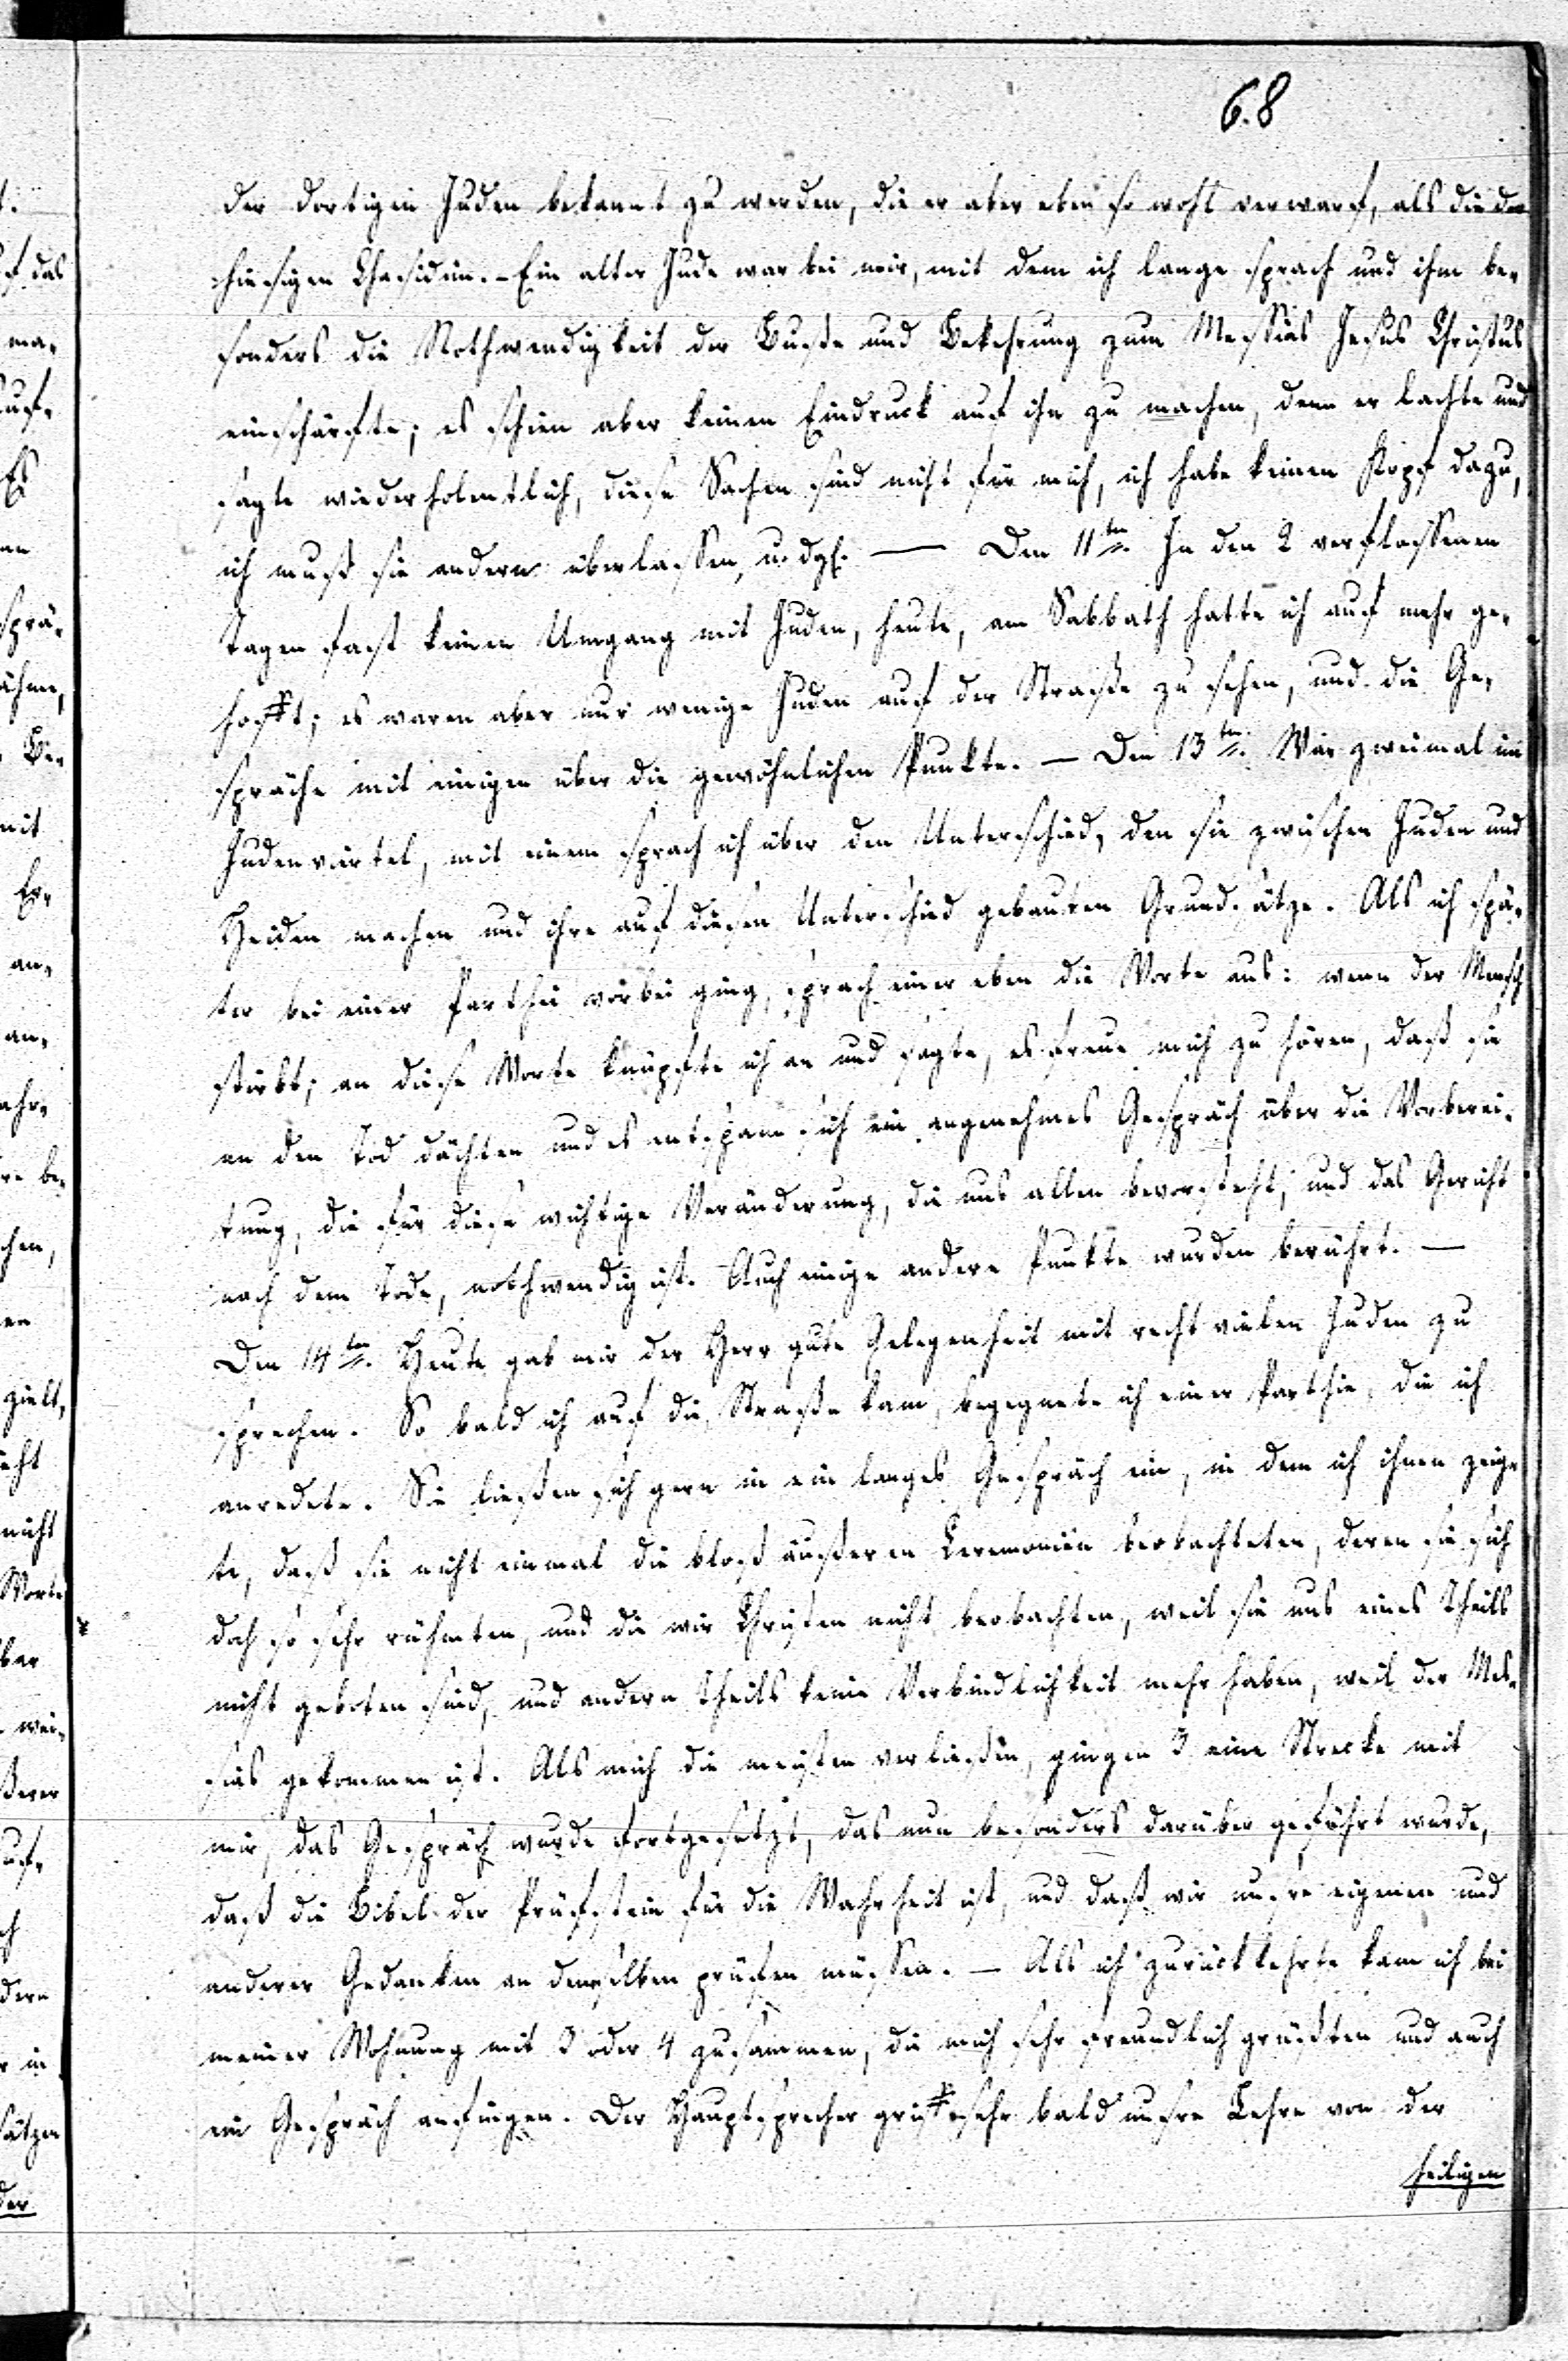 68
der dortigen Juden bekannt zu werden, die er aber eben so wohl verwarf, als die der
hiesigen Chasidim. - Ein alter Jude war bei mir, mit dem ich lange sprach und ihm be-
sonders die Nothwendigkeit der Buße und Bekehrung zum Messias Jesus Christus
einschärfte; es schien aber keinen Eindruck auf ihn zu machen, denn er lachte und
sagte wiederholentlich, diese Sachen sind nicht für mich, ich habe keinen Kopf dazu,
ich muß sie andern überlassen, u. dgl. — Den 11ten. In den 2 verflossenen
Tagen fast keinen Umgang mit Juden, heute, am Sabbath hatte ich auf mehr ge-
hofft; es waren aber nur wenige Juden auf der Straße zu sehen, und die Ge-
spräche mit einigen über die gewöhnlichen Punkte. — Den 13ten. War zweimal im
Judenviertel, mit einem sprach ich über den Unterschied, den sie zwischen Juden und
Heiden machen und ihre auf diesen Unterschied gebauten Grundsätze. Als ich spä-
ter bei einer Parthei vorbei ging, sprach einer eben die Worte aus: wenn der Mensch
stirbt; an diese Worte knüpfte ich an und sagte, es freue mich zu hören, daß sie
an den Tod dächten und es entspann sich ein angenehmes Gespräch über die Vorberei-
tung, die für diese wichtige Veränderung, die uns allen bevorsteht, und das Gericht
nach dem Tode, nothwendig ist. Auch einige andere Punkte wurden berührt. —
Den 14ten. Heute gab mir der Herr gute Gelegenheit mit recht vielen Juden zu
sprechen. So bald ich auf die Straße kam, begegnete ich einer Parthie, die ich
anredete. Sie ließen sich gern in ein langes Gespräch ein, in dem ich ihnen zeig-
te, daß sie nicht einmal die bloß äußeren Ceremonien beobachteten, deren sie sich
doch so sehr rühmten, und die wir Christen nicht beobachten, weil sie uns eines Theils
nicht geboten sind, und andern Theils keine Verbindlichkeit mehr haben, weil der Mes-
sias gekommen ist. Als mich die meisten verließen, gingen 3 eine Strecke mit
mir, das Gespräch wurde fortgesetzt, das nun besonders darüber geführt wurde,
daß die Bibel der Prüfstein für die Wahrheit ist, und daß wir unsre eigenen und
anderer Gedanken an demselben prüfen müssen. — Als ich zurückkehrte kam ich bei
meiner Wohnung mit 3 oder 4 zusammen, die mich sehr freundlich grüßten und auch
ein Gespräch anfingen. Der Hauptsprecher griff sehr bald unsre Lehre von der
heiligen